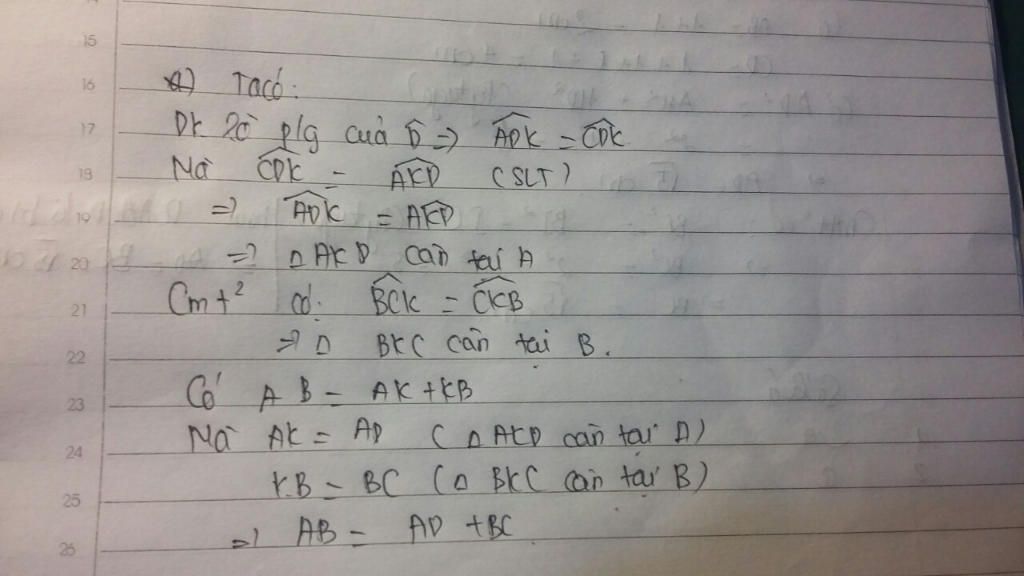 15
16
a) Ta có:
17
DK là p/g của D̂ => ADK̂ = CDK̂
18
Mà CDK̂ = AKD̂ (SLT)
19
=> ADK̂ = AKD̂
20
=> △AKD cân tại A
21
Cmt² có: BCK̂ = CKB̂
22
=> △ BKC cân tại B.
23
Có AB = AK + KB
24
Mà AK = AD (△AKD cân tại A)
25
KB = BC (△ BKC cân tại B)
26
=> AB = AD + BC